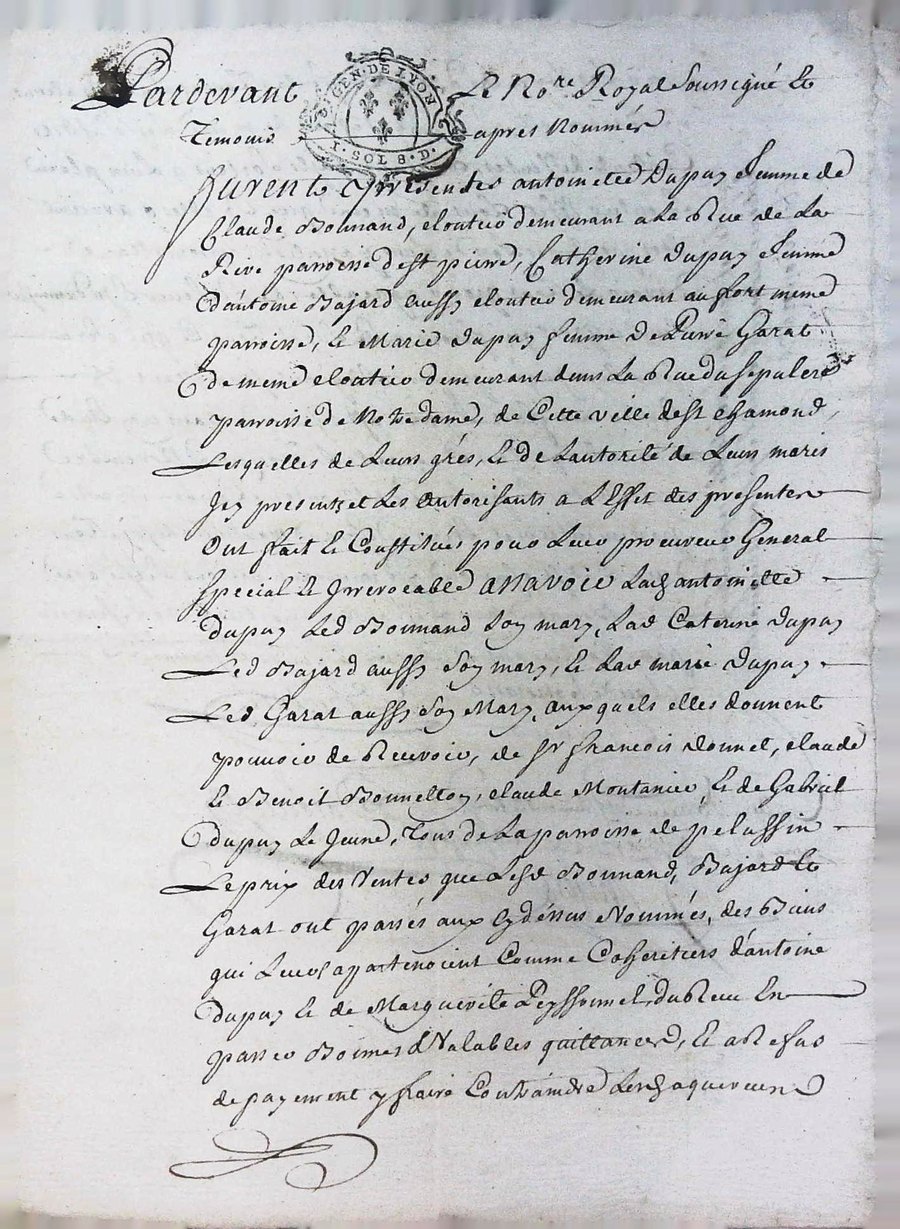 Pardevant Le No.re Royal Soussigné Et
GEN. DE LYON
I. SOL 8. D.
Temoins apres Nommés
furent cy presentes antoinette Dupuy femme de
Claude Bonnand, cloutier demeurant a La Rue de La
Rive parroisse de st pierre, Catherine dupuy femme
d'antoine Bajard aussy cloutier demeurant au fort meme
parroisse, Et Marie dupuy femme de Pierre Garat
de meme cloutier demeurant dans La Rue du sepulcre
parroisse de Notre dame, de Cette ville de st chamond,
Lesquelles de Leurs grés, Et de Lautorité de Leurs maris
Icy presents et Les autorisants a L'Effet des presentes
Ont fait Et Constitués pour Leur procureur General
special Et Irrevocable assavoir Lad antoinette
dupuy Led Bonnand son mary, Lad Caterine dupuy
Led Bajard aussy son mary, Et Lad marie dupuy
Led Garat aussy son Mary, auxquels elles donnent
pouvoir de Recevoir, de sr francois donnet, claude
Et Benoit Bonnetton, claude Montanier, Et de Gabriel
dupuy Le Jeune, Tous de La parroisse de pelussin
Le prix des Ventes que Lesd Bonnand, Bajard Et
Garat ont passés aux Cydessus Nommés, des Biens
qui Leurs apartenoient Comme Coheritiers d'antoine
dupuy Et de Marguerite Peyssonnel, du Recu En
passer Bonnes & Valables quittances, Et a Refus
de payement y faire Contraindre Les acquereurs